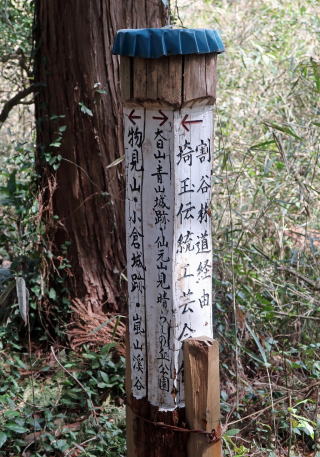 ← 割谷林道経由
埼玉伝統工芸会
→ 大日山・青山城跡・仙元山見晴らしの丘公園
← 物見山・小倉城跡・嵐山渓谷